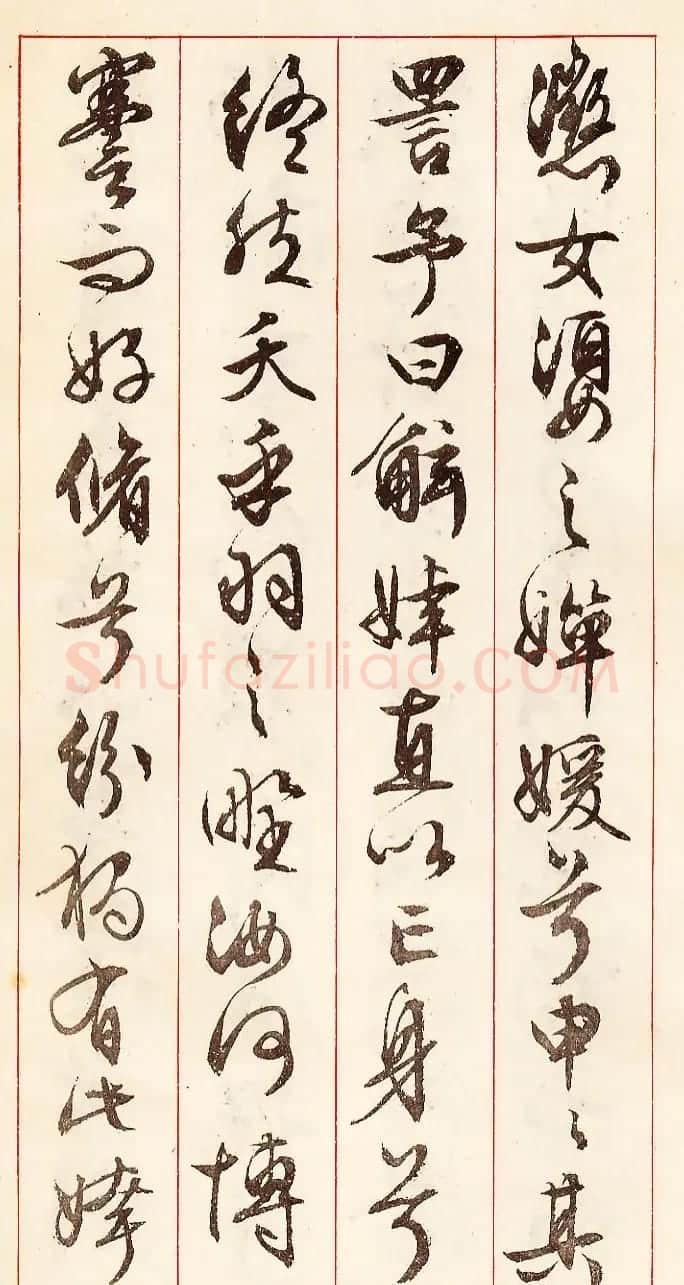 懲女嬃之嬋媛兮申〻其
詈予曰鮌婞直以亡身兮
終然夭乎羽之野汝何博
謇而好脩兮紛獨有此姱
Shufaziliao.COM